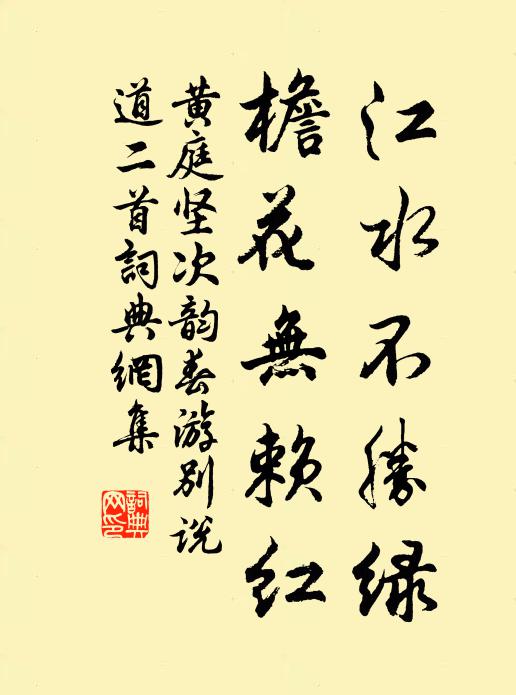 江水不勝绿
檐花無赖红
黄庭坚次韵春游别说
道二首詞典網集
詞典
网印